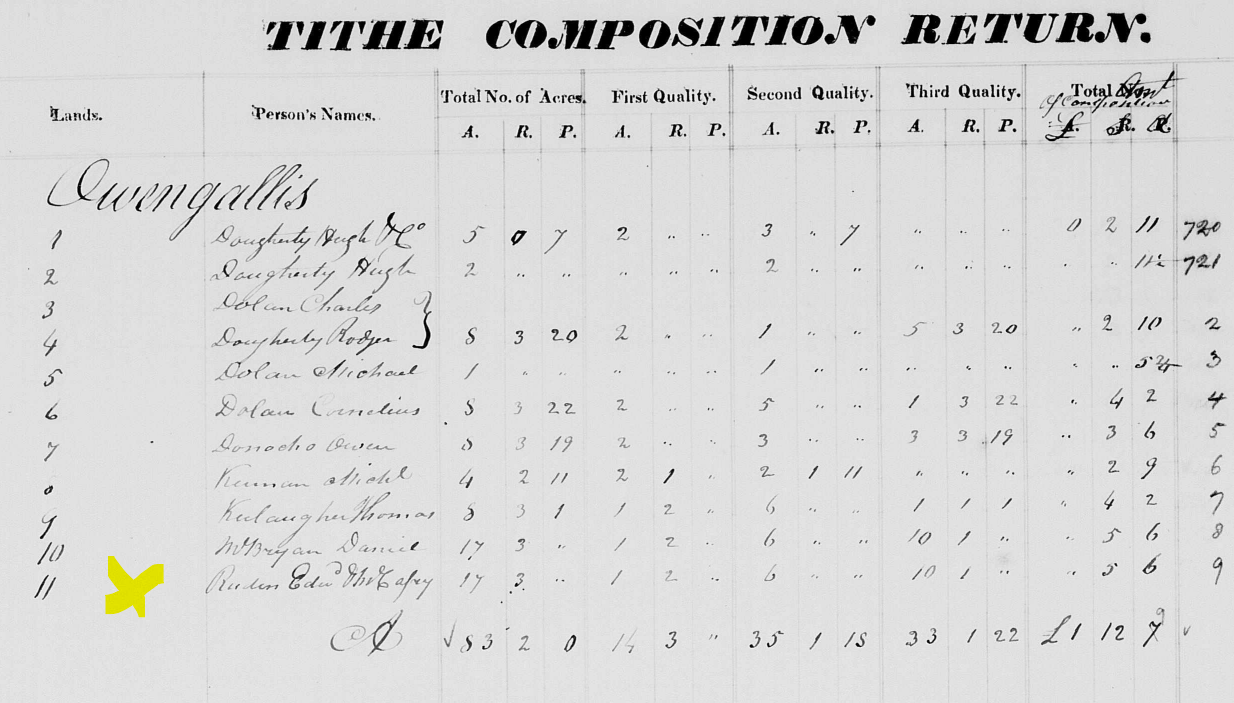 TITHE COMPOSITION RETURN.
Lands. Person's Names. Total No. of Acres. First Quality. Second Quality. Third Quality. Total Amt
of Composition
A. R. P. A. R. P. A. R. P. A. R. P. £ S D
Owengallis
1 Dougherty Hugh & Co 5 0 7 2 " " 3 " 7 " " " 0 2 11 720
2 Dougherty Hugh 2 " " " " " 2 " " " " " " " 11½ 721
3 Dolan Charles }
4 Dougherty Rodger } 8 3 20 2 " " 1 " " 5 3 20 " 2 10 2
5 Dolan Michael 1 " " " " " 1 " " " " " " " 5¾ 3
6 Dolan Cornelius 8 3 22 2 " " 5 " " 1 3 22 " 4 2 4
7 Donocho Owen 8 3 19 2 " " 3 " " 3 3 19 " 3 6 5
8 Michl 4 2 11 2 1 " 2 1 11 " " " " 2 9 6
9 Thomas 8 3 1 1 2 " 6 " " 1 1 1 " 4 2 7
10 McBryan Daniel 17 3 " 1 2 " 6 " " 10 1 " " 5 6 8
11 Edwd & 17 3 " 1 2 " 6 " " 10 1 " " 5 6 9
83 2 0 14 3 " 35 1 18 33 1 22 £1 12 7